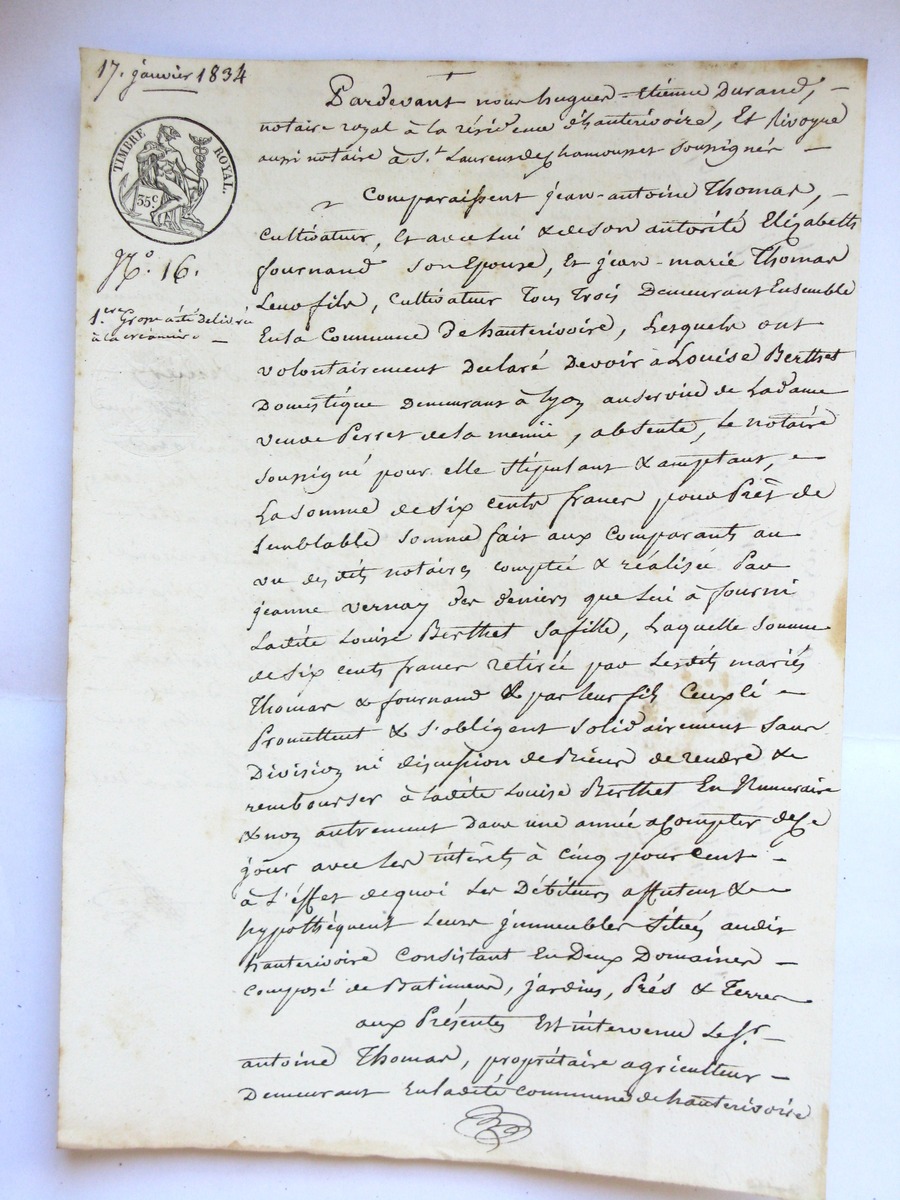 17. janvier 1834
TIMBRE ROYAL.
35c
No. 16.
1.ere Grosse a été délivrée
à la créancière —
Pardevant nous hugues-Etienne Durand, —
notaire royal à la résidence d'hauterivoire, Et Rivoyre
aussi notaire à St. Laurent de Chamousset soussignés —
Comparaissent jean-antoine Thomas, —
Cultivateur, Et avec lui & de son autorité Elizabeth
fournand son Epouse, Et jean-marie Thomas
Leur fils, Cultivateur Tous Trois Demeurant Ensemble
En la Commune d'hauterivoire, Lesquels ont
volontairement Déclaré Devoir à Louise Berthet
Domestique Demeurant à lyon au service de La dame
veuve Perret de la , absente, Le notaire
soussigné pour elle stipulant & acceptant,
La somme de six cents francs pour Prêt de
semblable somme fait aux Comparants au
vu desdits notaires comptée & réalisée Par
jeanne vernay des deniers que lui à fourni
Ladite Louise Berthet sa fille, Laquelle somme
de six cents francs retirée par lesdits mariés
Thomas & fournand & par leur fils
Promettent & s'obligent solidairement sans
Division ni discussion de rendre &
rembourser à ladite Louise Berthet En Numéraire
& non autrement Dans une année à Compter de Ce
jour avec les intérêts à cinq pour cent —
à L'effet de quoi Les Débiteurs affectent &
hypothèquent Leurs jmmeubles situés audit
hauterivoire Consistant En Deux Domaines —
Composé de Batiments, jardins, Prés & Terres
aux Présentes Est intervenu Le Sr. —
antoine Thomas, propriétaire agriculteur —
Demeurant En ladite Commune d'hauterivoire